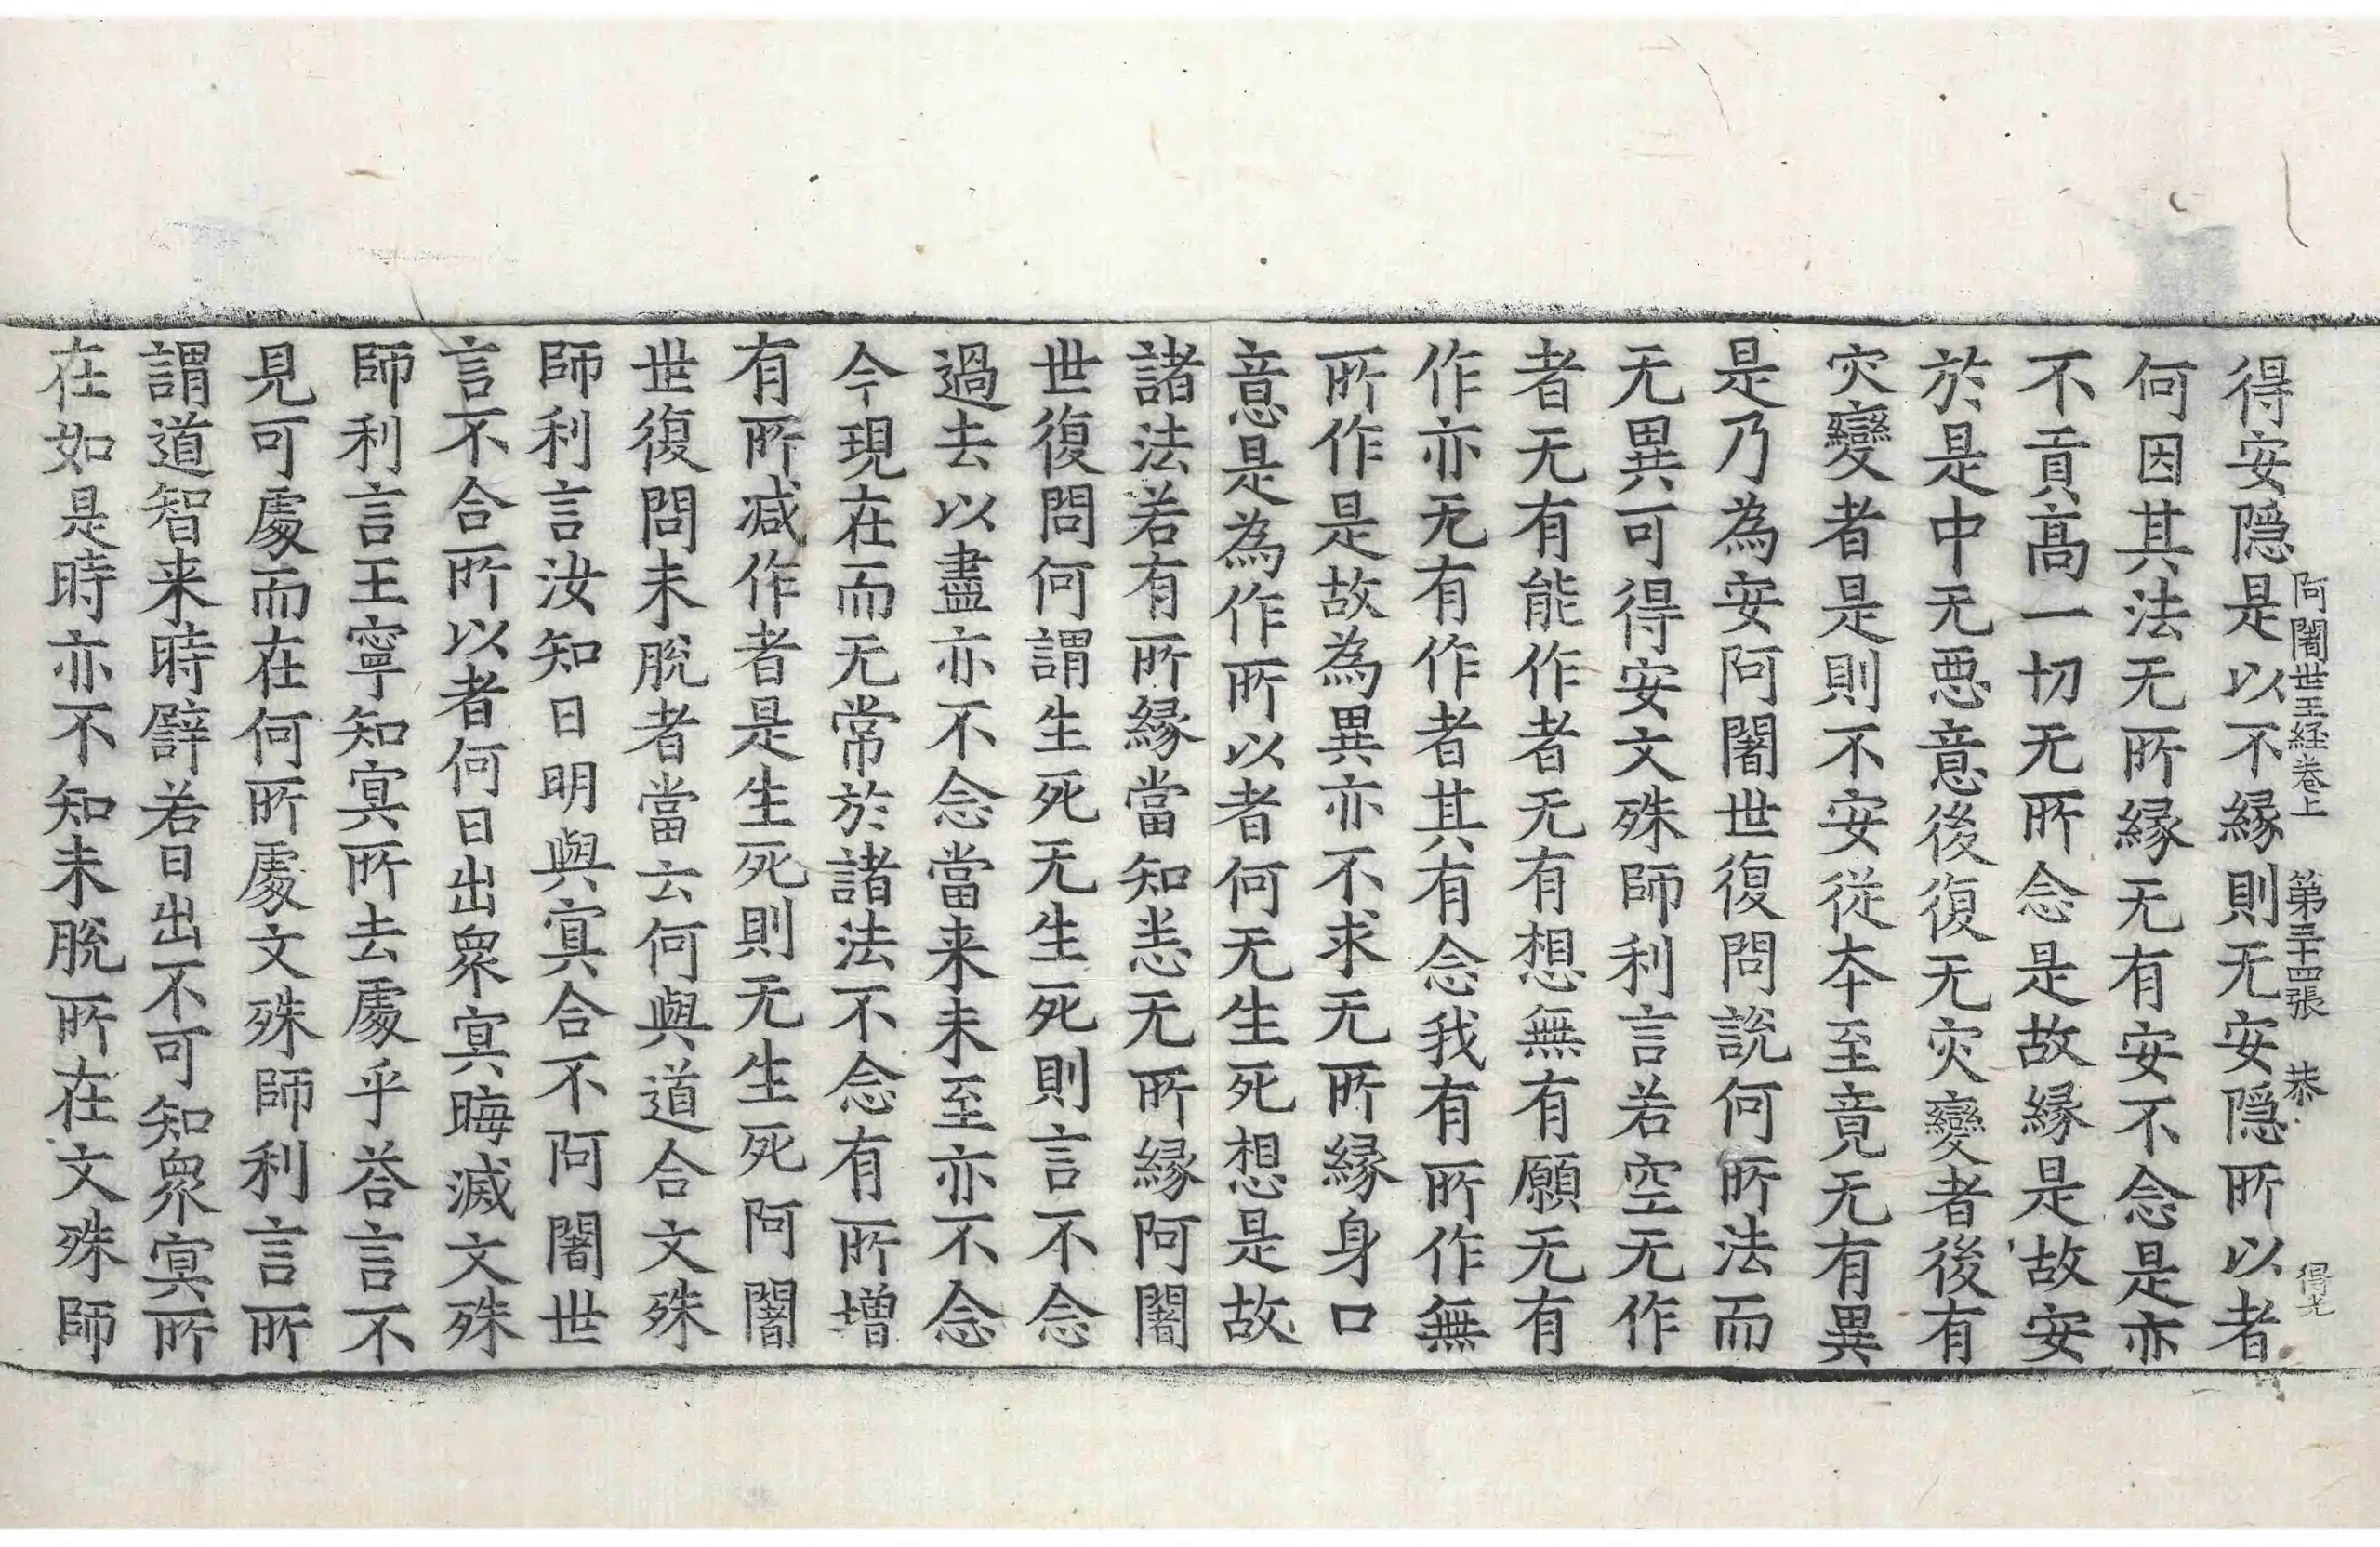 阿闍世王経卷上　第三十四張　恭　得尤
得安隠是以不縁則无安隠所以者
何因其法无所縁无有安不念是亦
不貢高一切无所念是故縁是故安
於是中无悪意後復无灾變者後有
灾變者是則不安從夲至竟无有異
是乃為安阿闍世復問說何所法而
无異可得安文殊師利言若空无作
者无有能作者无有想無有願无有
作亦无有作者其有念我有所作無
所作是故為異亦不求无所縁身口
意是為作所以者何无生死想是故
諸法若有所縁當知恙无所縁阿闍
世復問何謂生死无生死則言不念
過去以盡亦不念當来未至亦不念
今現在而无常於諸法不念有所増
有所减作者是生死則无生死阿闍
世復問未脫者當云何與道合文殊
師利言汝知日明與冥合不阿闍世
言不合所以者何日出衆冥晦滅文殊
師利言王寧知冥所去處乎荅言不
見可處而在何所處文殊師利言所
謂道智来時譬若日出不可知衆冥所
在如是時亦不知未脫所在文殊師